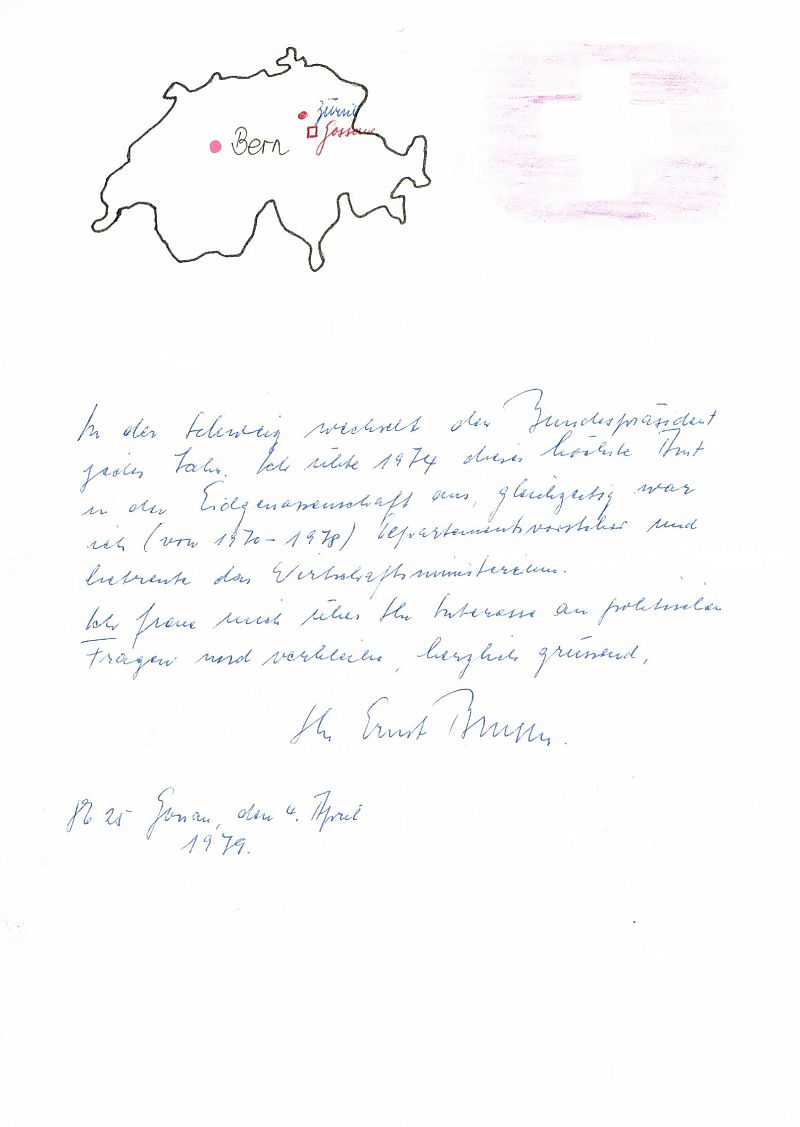 Zürich
Gossau
Bern
In der Schweiz wechselt der Bundespräsident
jedes Jahr. Ich übte 1974 dieses höchste Amt
in der Eidgenossenschaft aus, gleichzeitig war
ich (von 1970-1978) Departementsvorsteher und
betreute das Wirtschaftsministerium.
Ich freue mich über Ihr Interesse an politischen
Fragen und verbleibe, herzlich grüssend,
Ihr Ernst Brugger.
25 Gossau, den 4. April
1979.